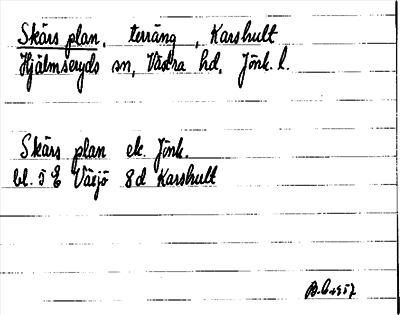 Skärs plan, terräng, Karshult
Hjälmseryds sn, Västra hd, Jönk. l.
Skärs plan ek. Jönk.
bl. 5 E Växjö 8d Karshult